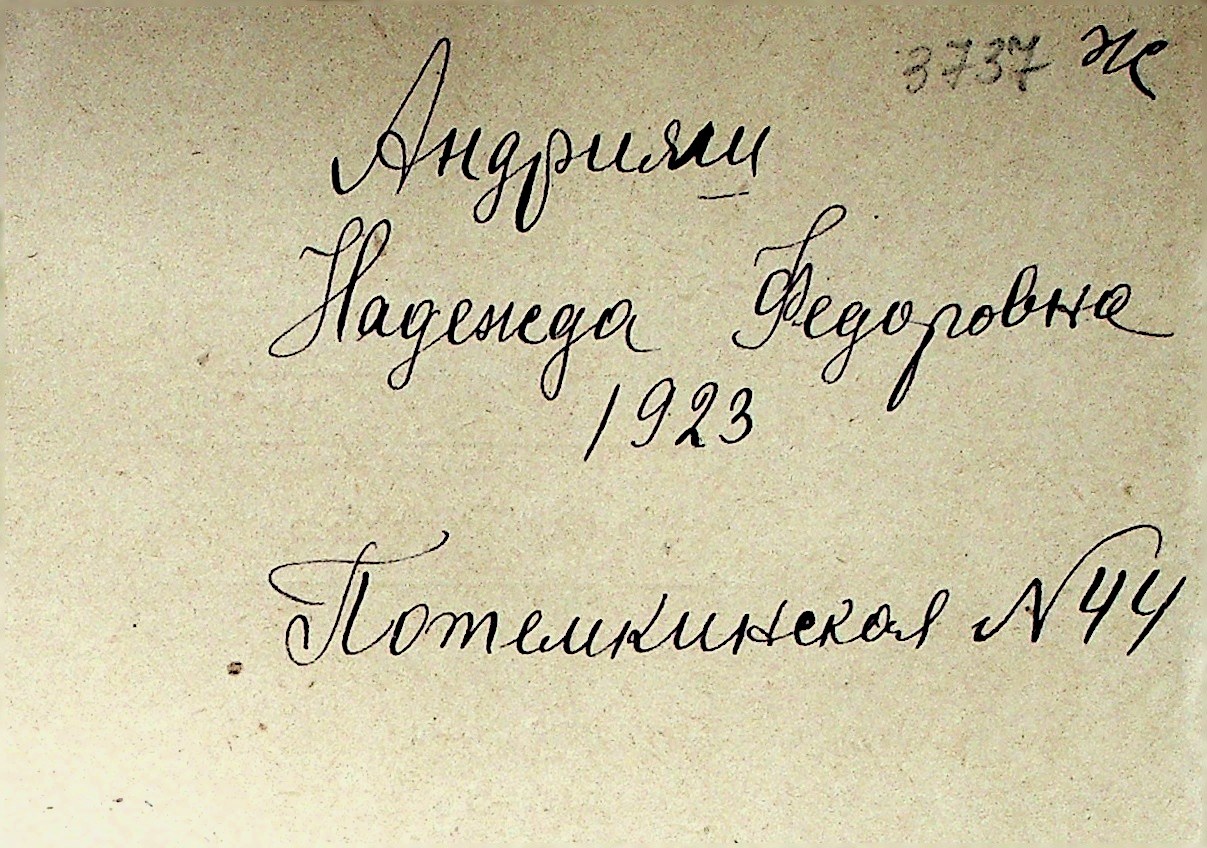 3737 ж
Андрияш
Надежда Федоровна
1923
Потемкинская № 44